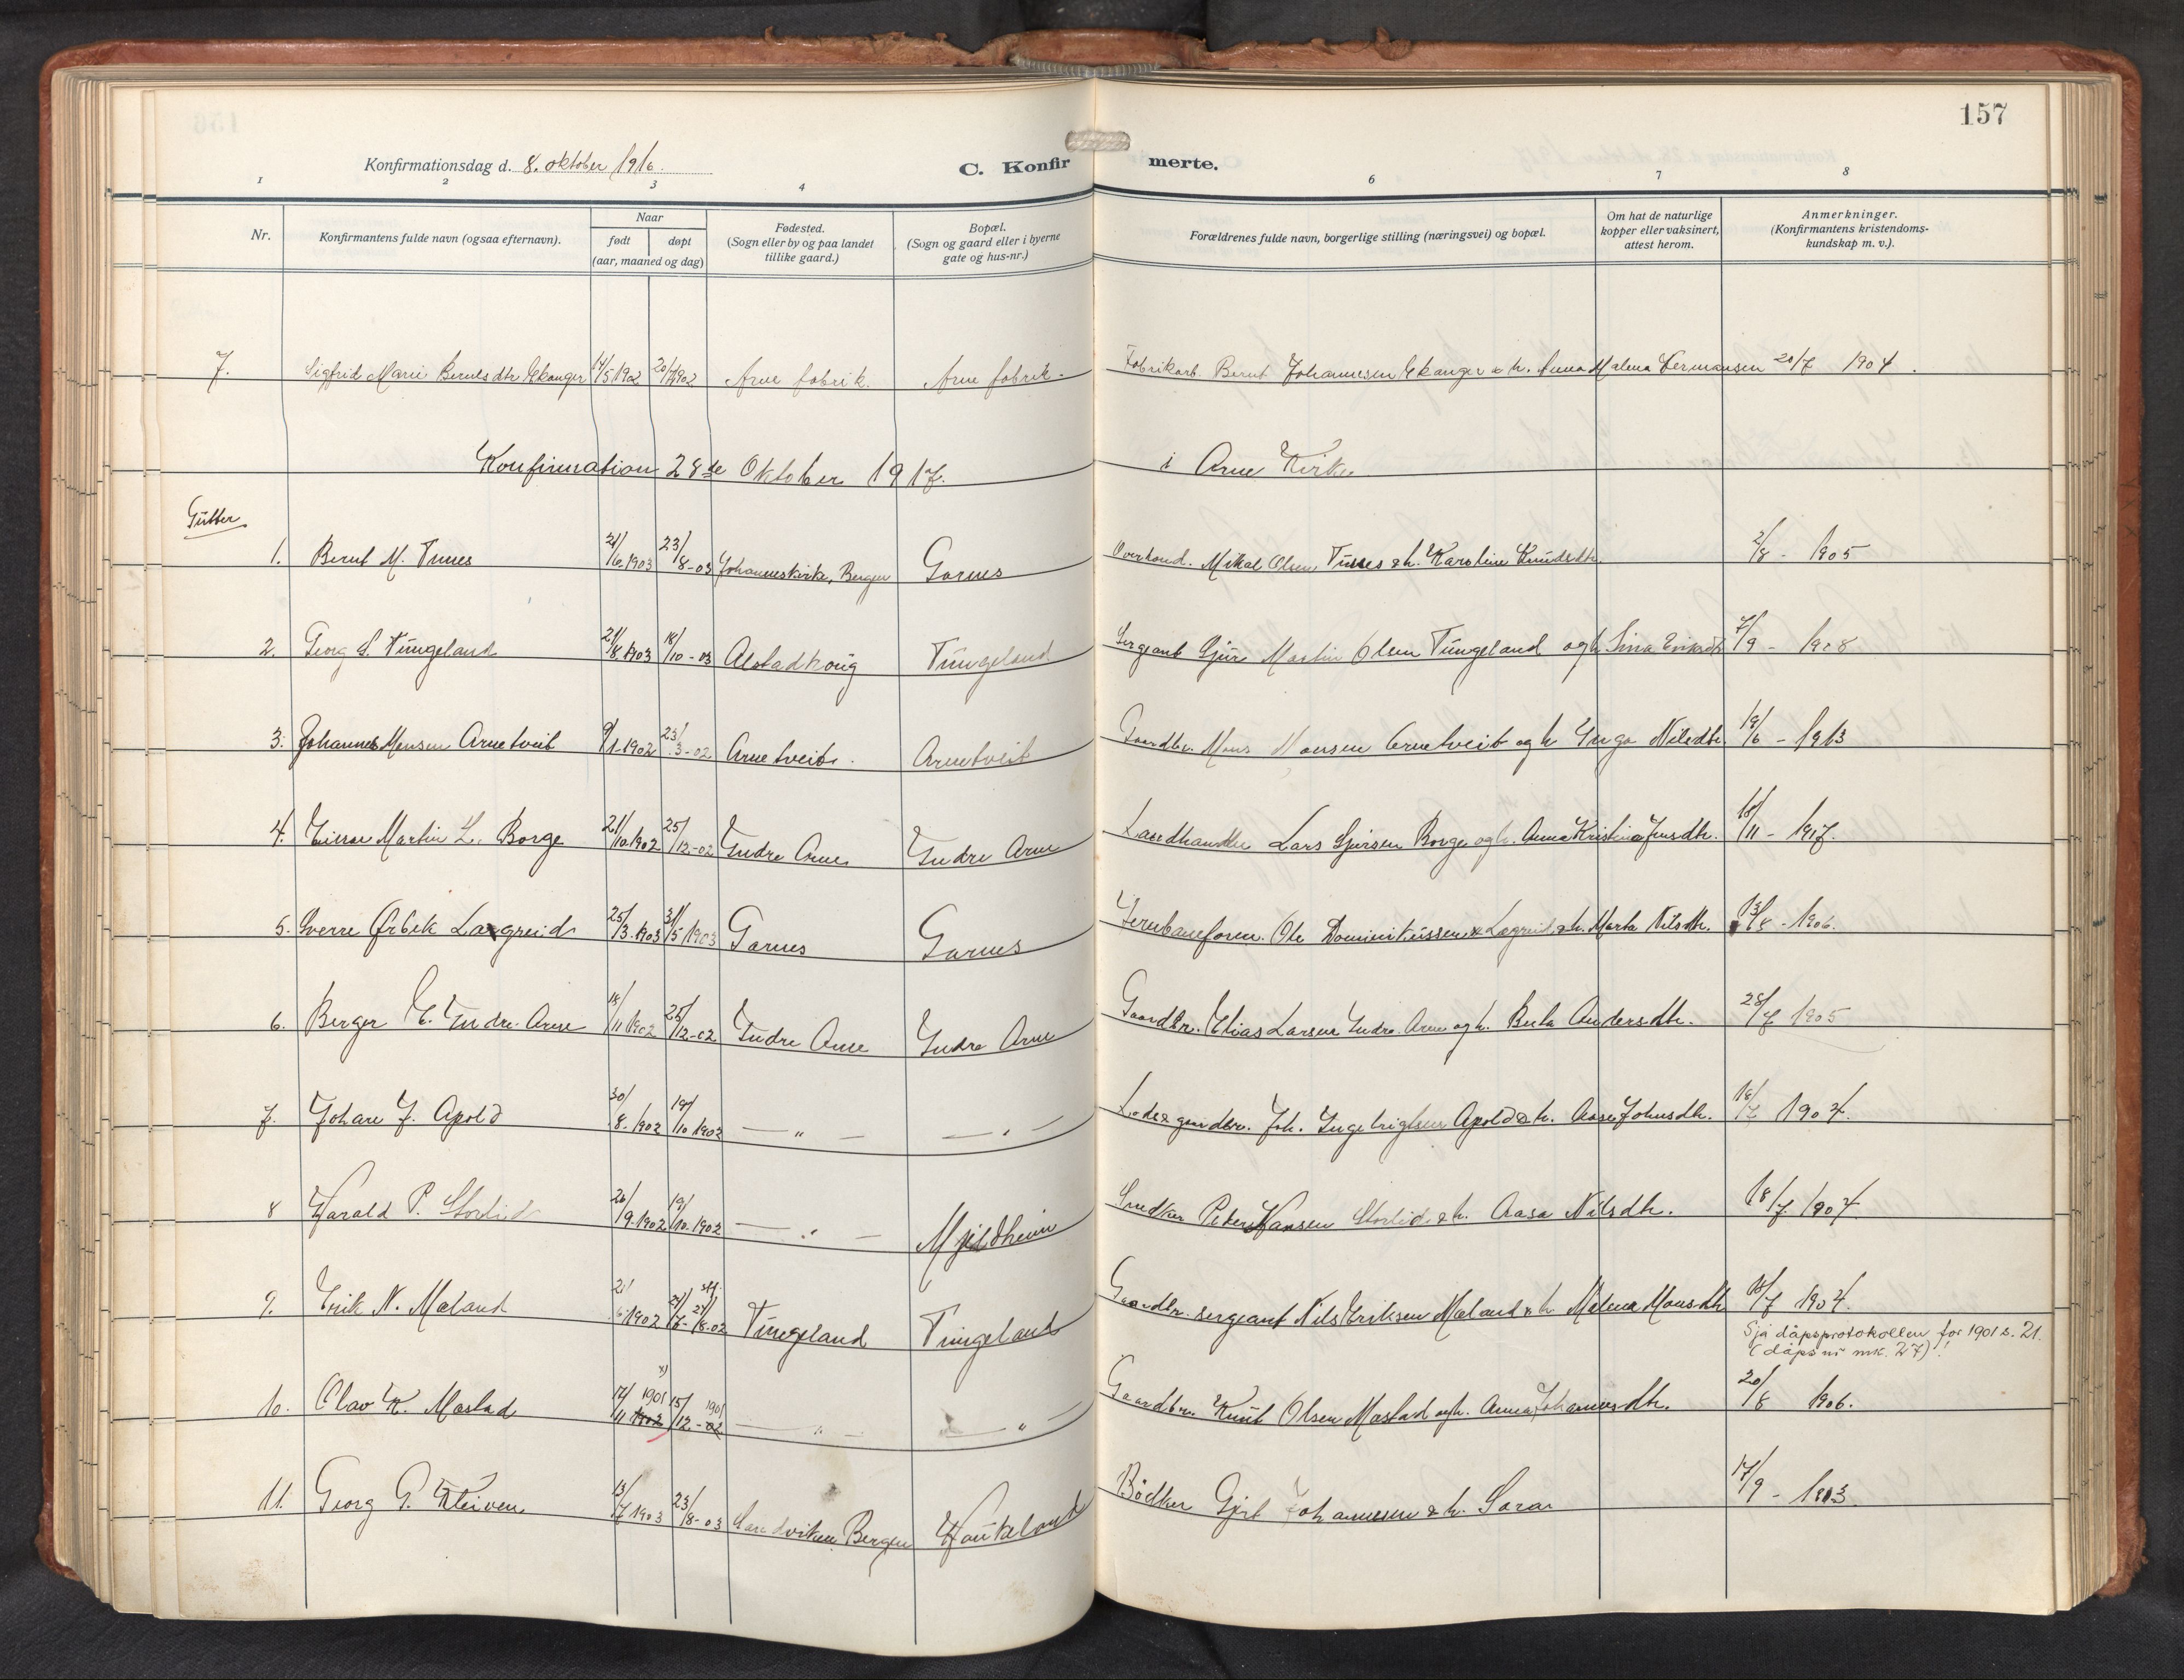 157
Konfirmationsdag d. 8. oktober 1916.
C. Konfirmerte.
1 2 3 4 6 7 8
Nr.
Konfirmantens fulde navn (ogsaa efternavn).
Naar
født døpt
(aar, maaned og dag)
Fødested.
(Sogn eller by og paa landet
tillike gaard.)
Bopæl.
(Sogn og gaard eller i byerne
gate og hus-nr.)
Forældrenes fulde navn, borgerlige stilling (næringsvei) og bopæl.
Om hat de naturlige
kopper eller vaksinert,
attest herom.
Anmerkninger.
(Konfirmantens kristendoms-
kundskap m. v.).
7. Sigfrid Marie Berntsdtr Ekanger 14/5 1902 20/7 1902 Arne fabrik. Arne fabrik. Fabrikarb. Bernt Johannesen Ekanger & h. Anna Malena Hermansen 20/7 1904.
Konfirmation 28de Oktober 1917. i Arne Kirke
Gutter
1. Bernt M. Tunes 21/6 1903 23/8-03 Johanneskirke, Bergen Garnes Mikal Olsen Tunes & h. Karoline Knudsdtr. 2/8 - 1905
2. Georg S. Tungeland 21/8 1903 18/10-03 Alstadhoug Tungeland Sergeant Sjur Martin Olsen Tungeland og h. Sina 7/9 - 1908
3. Johannes Monsen Arnetveit 9/1-1902 23/3-02 Arnetveit. Arnetveit Gaardbr. Mons Monsen Arnetveit og h Inga Nilsdtr. 19/6 - 1913
4. Einar Martin L. Borge 21/10 1902 25/12-02 Indre Arne Indre Arne Landhandler Lars Sjursen Borge og h. Anna Kristina Jensdtr. 10/11 - 1917.
5. Sverre Ørbek Lægreid 25/3.1903 31/5 1903 Garnes Garnes Jernbaneform. Ole Dominikussen Lægreid & h. Marta Nilsdtr. 13/8 - 1906.
6. Berger E. Indre Arne 18/11 1902 25/12-02 Indre Arne Indre Arne Gaardbr. Elias Larsen Indre Arne og h. Berta Andersdtr. 28/7 1905
7. Johan J. Apold 30/8.1902 19/10 1902 — " — — " — Joh. Ingebrigtsen Apold & h. Aase Johnsdtr. 18/7 1904.
8 Harald P. Storlid 26/9.1902 19/10.1902 — " — Mjeldheim Snedker Peter Hansen Storlid & h. Aasa Nilsdtr. 18/7 1904
9. Erik N. Moland 21/6.1902 21/6 - 24/8-02 Tungeland Tungeland Gaardbr. sergeant Nils Eriksen Moland & h Malena Monsdtr 18/7 1904.
Sjå dåpsprotokollen for 1901 s. 21.
(dåps nr mk. 27)!
10. Olav K. Mastad 17/11 1902 x) 1901 15/12-02 1901 — " — — " — Gaardbr. Knut Olsen Mastad og h. Anna Johannesdtr. 20/8 1906.
11. Georg G. Kleiven 13/7 1903 23/8-03 Sandviken Bergen Haukeland Bödker Gjert Johannesen & h. Sara 17/9 - 1903.